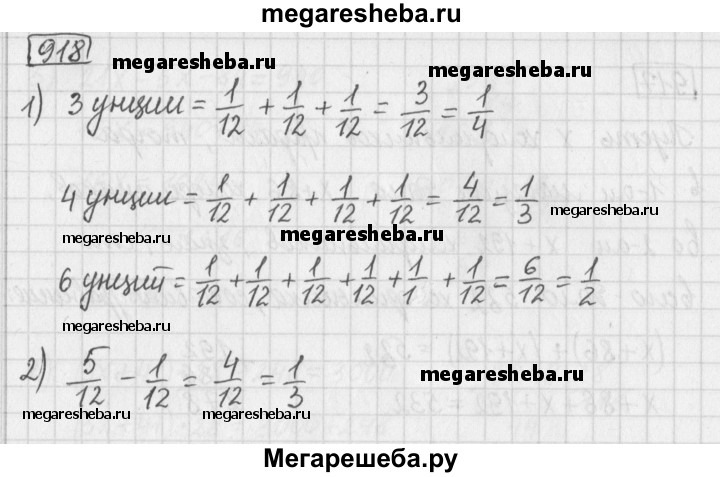 megaresheba.com
918
megaresheba.com megaresheba.com
1) 3 унции = 1/12 + 1/12 + 1/12 = 3/12 = 1/4
4 унции = 1/12 + 1/12 + 1/12 + 1/12 = 4/12 = 1/3
megaresheba.com
megaresheba.com megaresheba.com
6 унций = 1/12 + 1/12 + 1/12 + 1/12 + 1/1 + 1/12 = 6/12 = 1/2
megaresheba.com megaresheba.com
2) 5/12 - 1/12 = 4/12 = 1/3
megaresheba.com
megaresheba.com megaresheba.com
Мегарешеба.ру